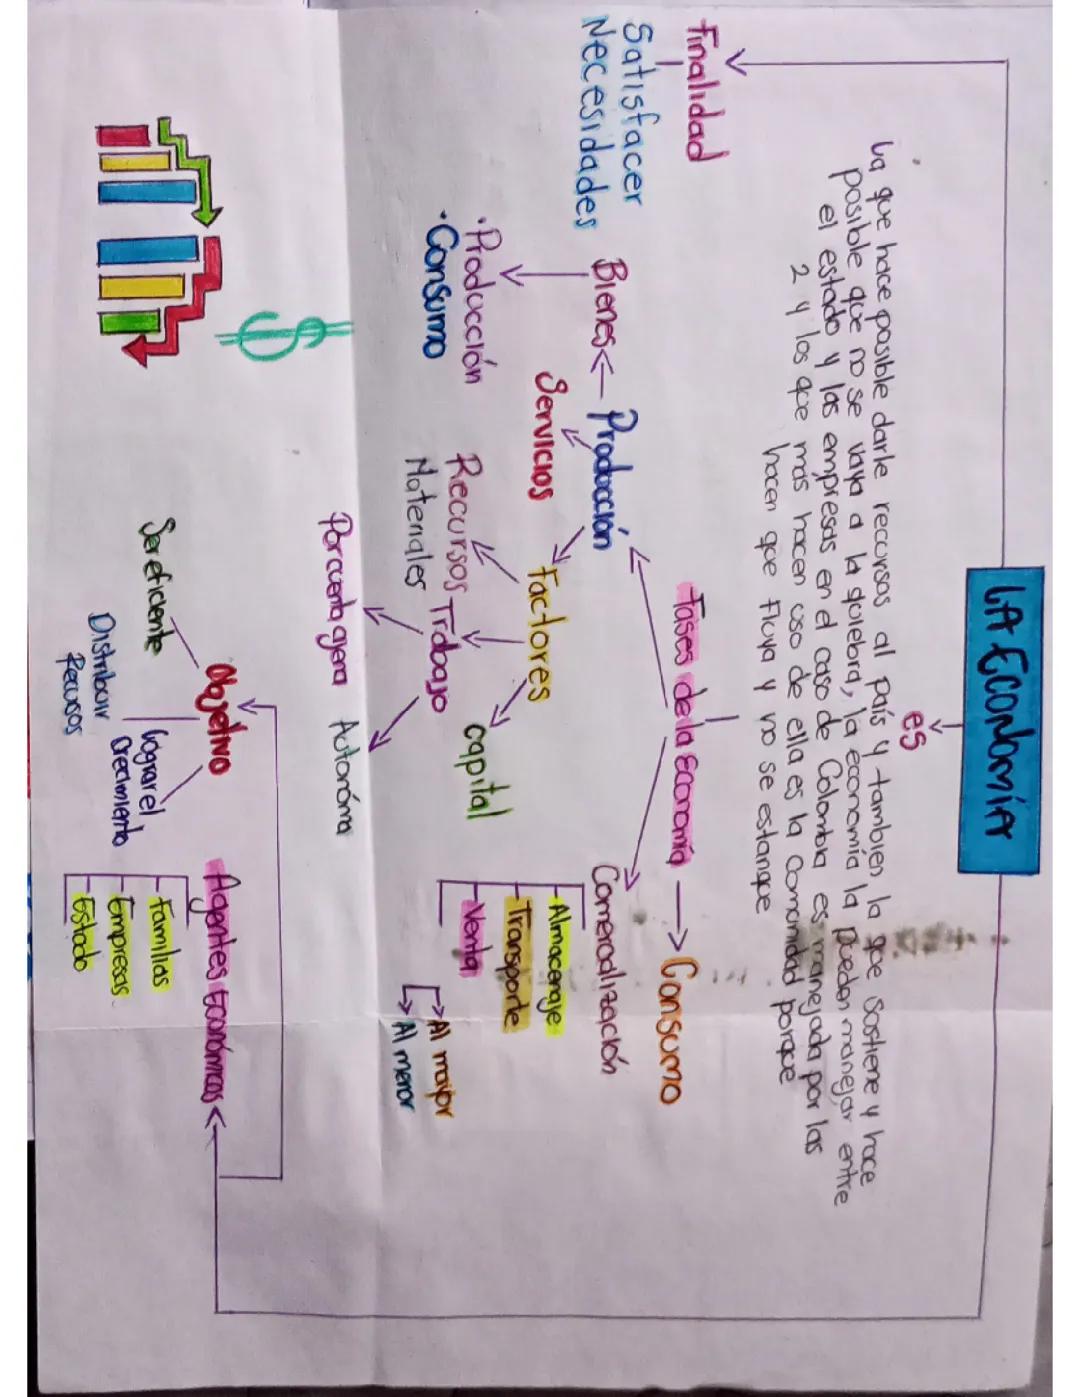 LA ECONOMÍA
es
La que hace posible darle recursos al país y tambien la que sostiene y hace
posible que no se vaya a la quiebra, la economía la pueden manejar entre
el estado y las empresas en el caso de Colombia es manejada por las
2 y los que más hacen uso de ella es la Comunidad porque
hacen que fluya y no se estanque
Finalidad
Satisfacer
Necesidades
Fases de la Economía
Consumo
Bienes
Producción
Comercialización
Servicios
Factores
Almacenaje
Transporte
Venta
Al mayor
Al menor
·Producción
·Consumo
Recursos
Materiales
Trabajo
capital
Por cuenta ajena
Autonóma
Objetivo
Ser eficiente
Distribuir
Recursos
Lograr el
Crecimiento
Agentes Económicos
Familias
Empresas
Estado
$